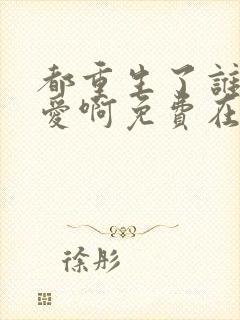 都重生了誰
愛啊免費在
徐彤